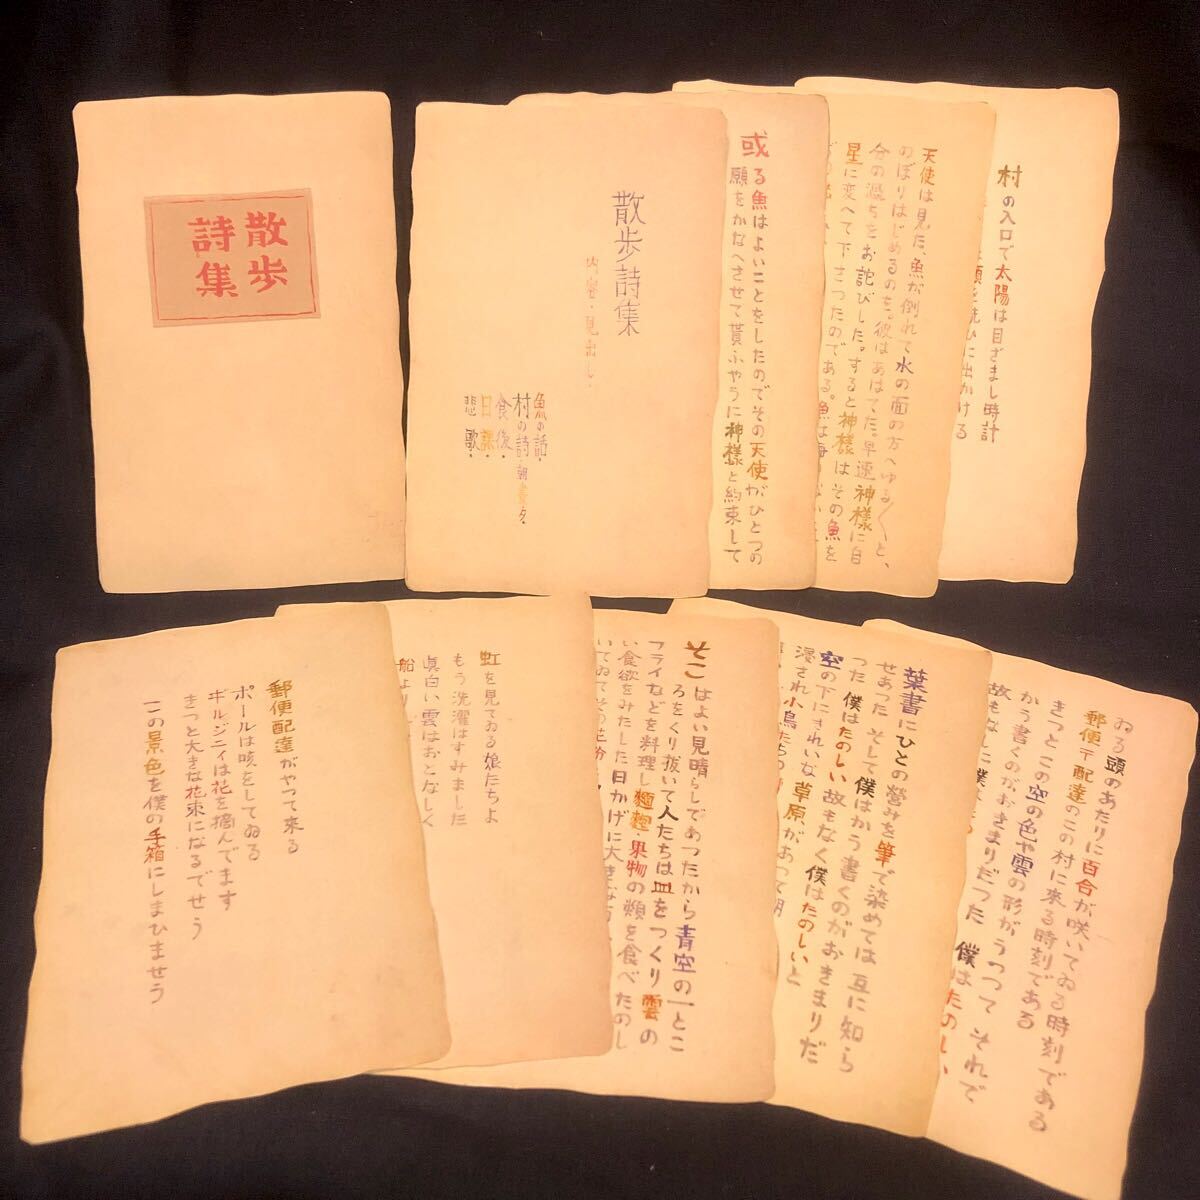 散歩
詩集
散歩詩集
内容・見出し・
魚の話・
村の詩・朝・昼・夕・
食後・
日課・
悲歌・
或る魚はよいことをしたのでその天使がひとつの
願をかなへさせて貰ふやうに神様と約束して
天使は見た、魚が倒れて水の面の方へゆる〳〵と、
のぼりはじめるのを。彼はあはてた。早速神様に自
分の過ちをお詫びした。すると神様はその魚を
星に変へて下さつたのである。魚は海
村の入口で太陽は目ざまし時計
顔を洗ひに出かける
郵便配達がやつて来る
ポールは咳をしてゐる
ギルジニイは花を摘んでます
きつと大きな花束になるでせう
この景色を僕の手箱にしまひませう
虹を見てゐる娘たちよ
もう洗濯はすみました
真白い雲はおとなしく
船より
そこはよい見晴らしであつたから青空の一とこ
ろをくり抜いて人たちは皿をつくり雲の
フライなどを料理し麺麭・果物の類を食べたのし
い食欲をみたした日かげに大きな
いてゐてその花粉
葉書にひとの営みを筆で染めては互に知ら
せあつた そして僕はかう書くのがおきまりだ
つた 僕はたのしい故もなく僕はたのしいと
空の下にきれいな草原があつて明
浸され小鳥たちの
ゐる頭のあたりに百合が咲いてゐる時刻である
郵便〒配達のこの村に来る時刻である
きつとこの空の色や雲の形がうつつて それで
かう書くのがおきまりだつた 僕はたのしい
故もなしに僕は